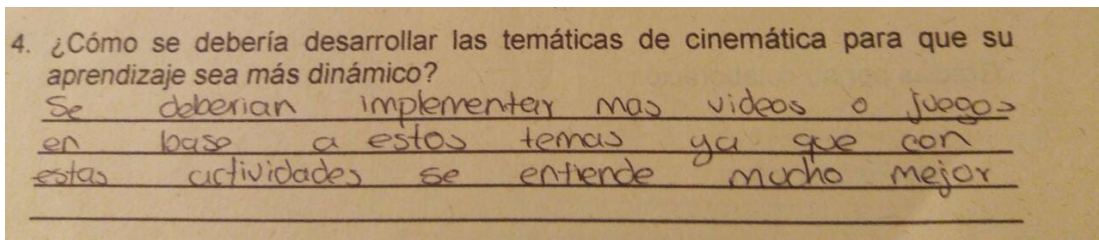 4. ¿Cómo se debería desarrollar las temáticas de cinemática para que su
aprendizaje sea más dinámico?
Se deberian implementar mas videos o juegos
en base a estos temas ya que con
estas actividades se entiende mucho mejor